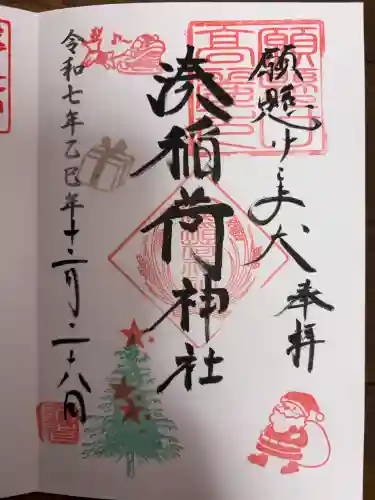 願懸けこま犬
奉拝
湊稲荷神社
令和七年乙巳年十二月二十八日